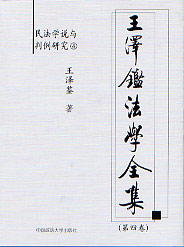 民法学说与
判例研究④
王泽鉴 著
王澤鑑法學全集
(第四卷)
中国政法大学出版社